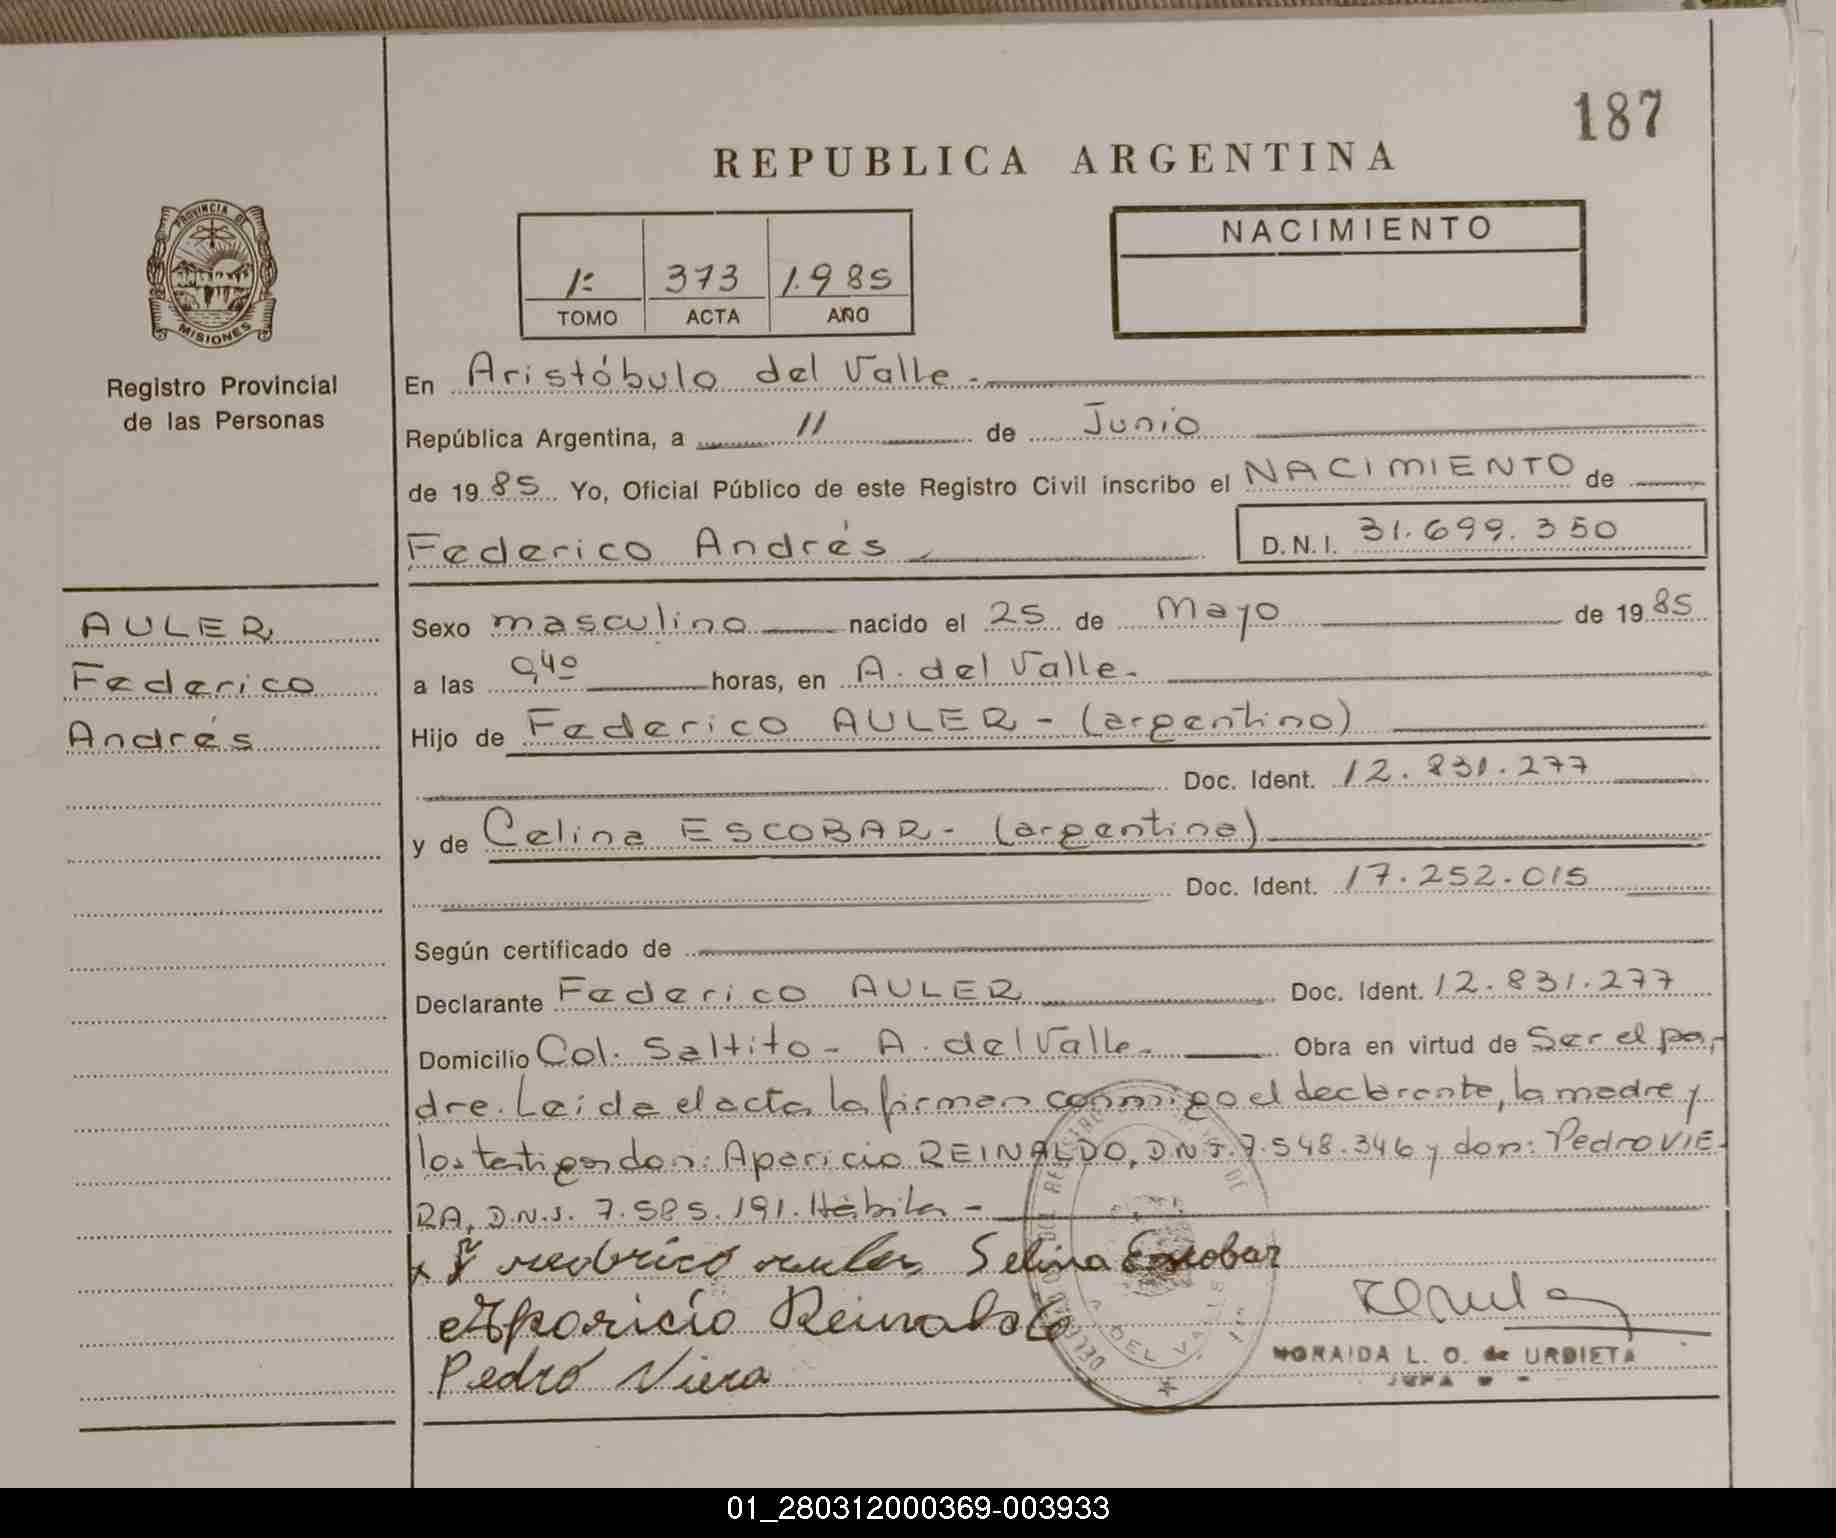 187
REPUBLICA ARGENTINA
PROVINCIA DE
MISIONES
Registro Provincial
de las Personas
1º 373 1.985
TOMO ACTA AÑO
NACIMIENTO
En Aristóbulo del Valle.-
República Argentina, a 11 de Junio
de 1985 Yo, Oficial Público de este Registro Civil inscribo el NACIMIENTO de
Federico Andrés
D.N.I. 31.699.350
AULER
Federico
Andrés
Sexo masculino nacido el 25 de Mayo de 1985
a las 0,40 horas, en A. del Valle.
Hijo de Federico AULER - (argentino)
Doc. Ident. 12.831.277
y de Celina ESCOBAR - (argentina)
Doc. Ident. 17.252.015
Según certificado de
Declarante Federico AULER Doc. Ident. 12.831.277
Domicilio Col. Saltito - A. del Valle. Obra en virtud de Ser el pa-
dre. Leida el acta la firman conmigo el declarante, la madre y
los testigos don: Aparicio REINALDO, D.N.I. 7.548.346 y don: Pedro VIE-
RA, D.N.I. 7.585.191. Hábiles -
x Federico Auler Selina Escobar
Aparicio Reinaldo
Pedro Viera
DEL REGISTRO DE
A. DEL VALLE
NORAIDA L. O. de URDIETA
01_280312000369-003933